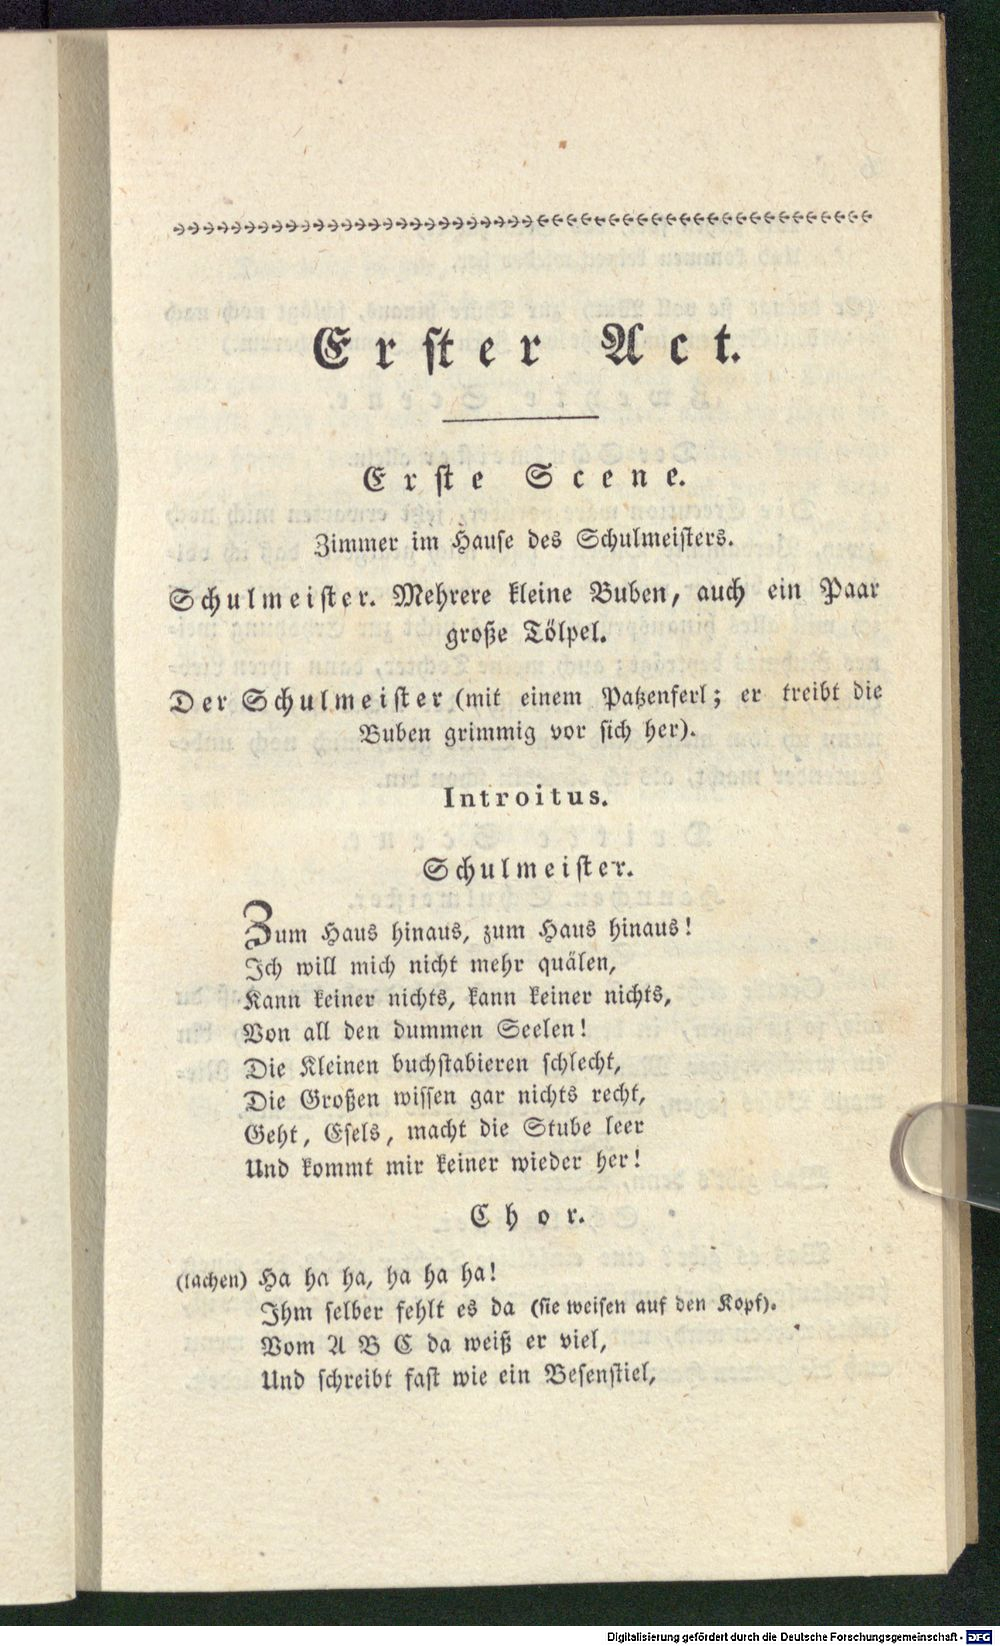 Erster Act.
Erste Scene.
Zimmer im Hause des Schulmeisters.
Schulmeister. Mehrere kleine Buben, auch ein Paar
große Tölpel.
Der Schulmeister (mit einem Patzenferl; er treibt die
Buben grimmig vor sich her).
Introitus.
Schulmeister.
Zum Haus hinaus, zum Haus hinaus!
Ich will mich nicht mehr quälen,
Kann keiner nichts, kann keiner nichts,
Von all den dummen Seelen!
Die Kleinen buchstabieren schlecht,
Die Großen wissen gar nichts recht,
Geht, Esels, macht die Stube leer
Und kommt mir keiner wieder her!
Chor.
(lachen) Ha ha ha, ha ha ha!
Ihm selber fehlt es da (sie weisen auf den Kopf).
Vom A B C da weiß er viel,
Und schreibt fast wie ein Besenstiel,
Digitalisierung gefördert durch die Deutsche Forschungsgemeinschaft - DFG